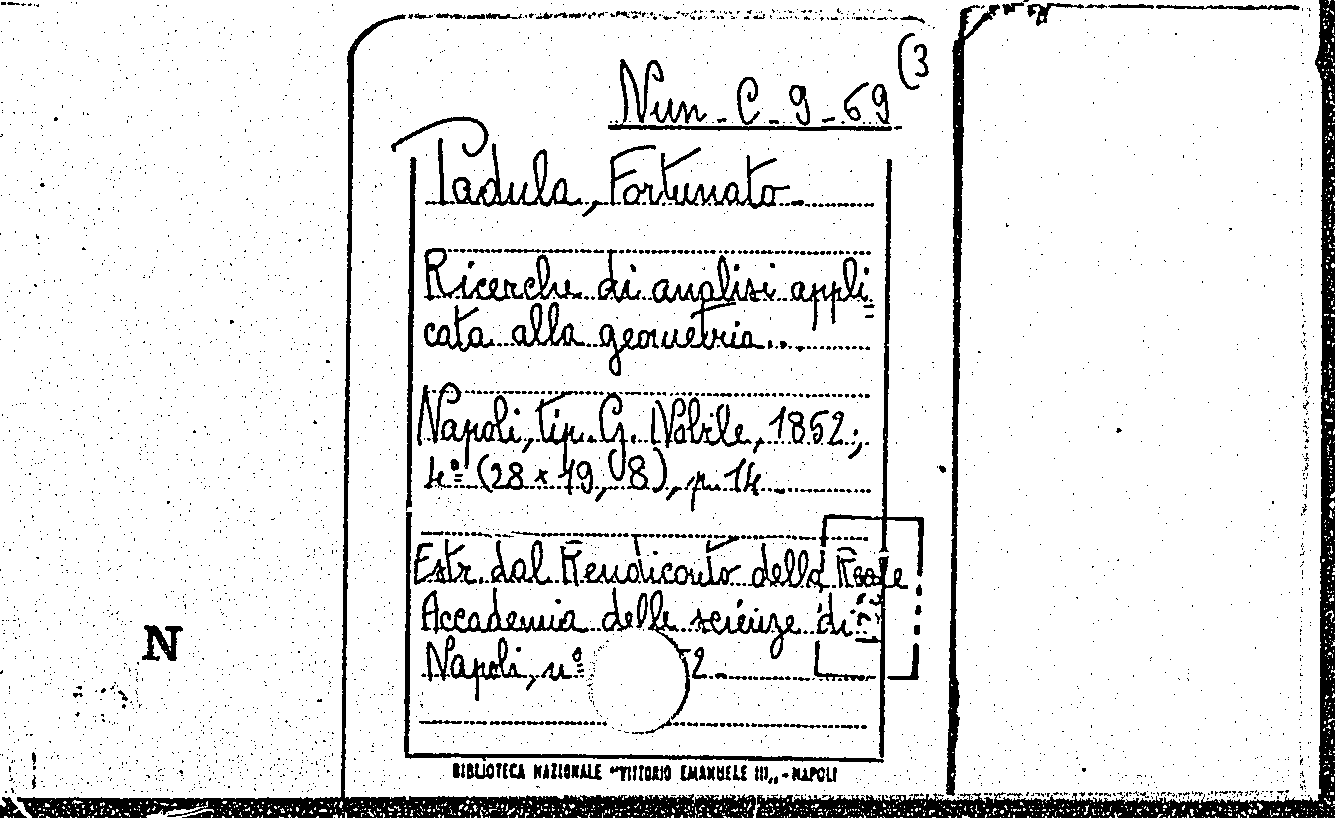 Nun - C - 9 - 69 (3
Padula, Fortunato -
Ricerche di analisi appli=
cata alla geometria...
Napoli, tip. G. Nobile, 1852;
4º (28 x 19,8), p. 14 -
Estr. dal Rendiconto della Reale
Accademia delle scienze di
Napoli, nº 2 -
N
BIBLIOTECA NAZIONALE "VITTORIO EMANUELE III„ - NAPOLI